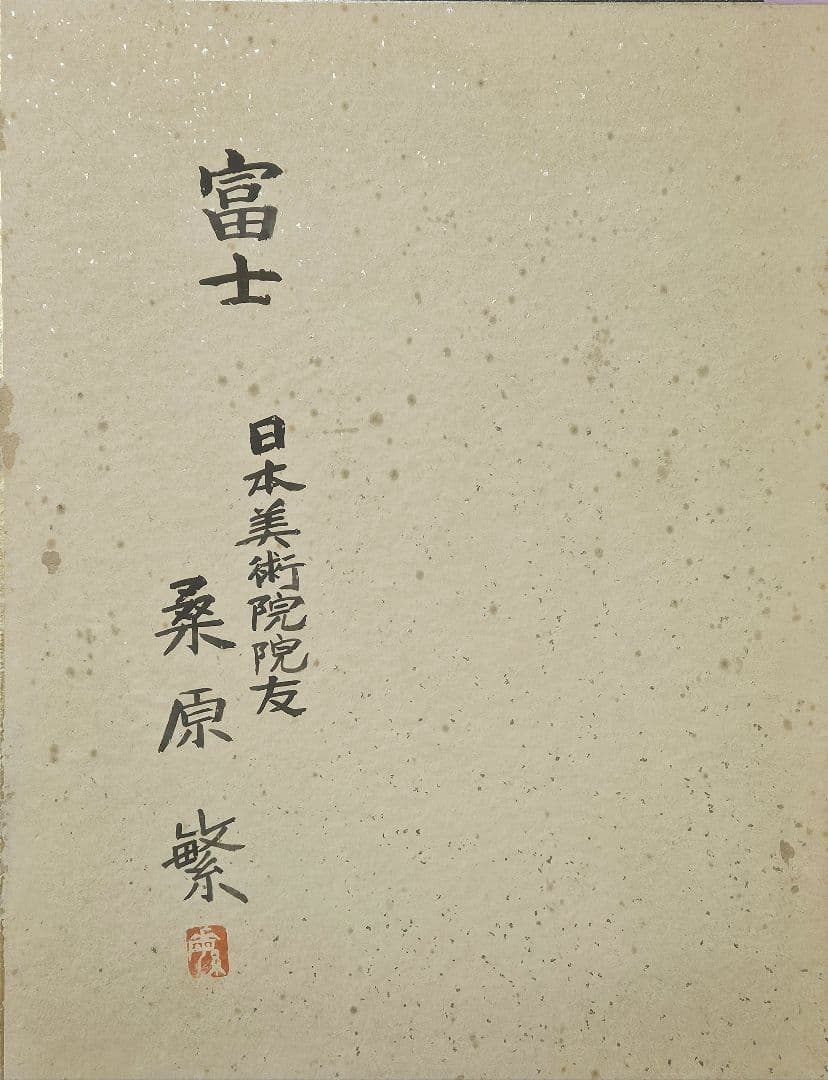 富士
日本美術院院友
桑原繁